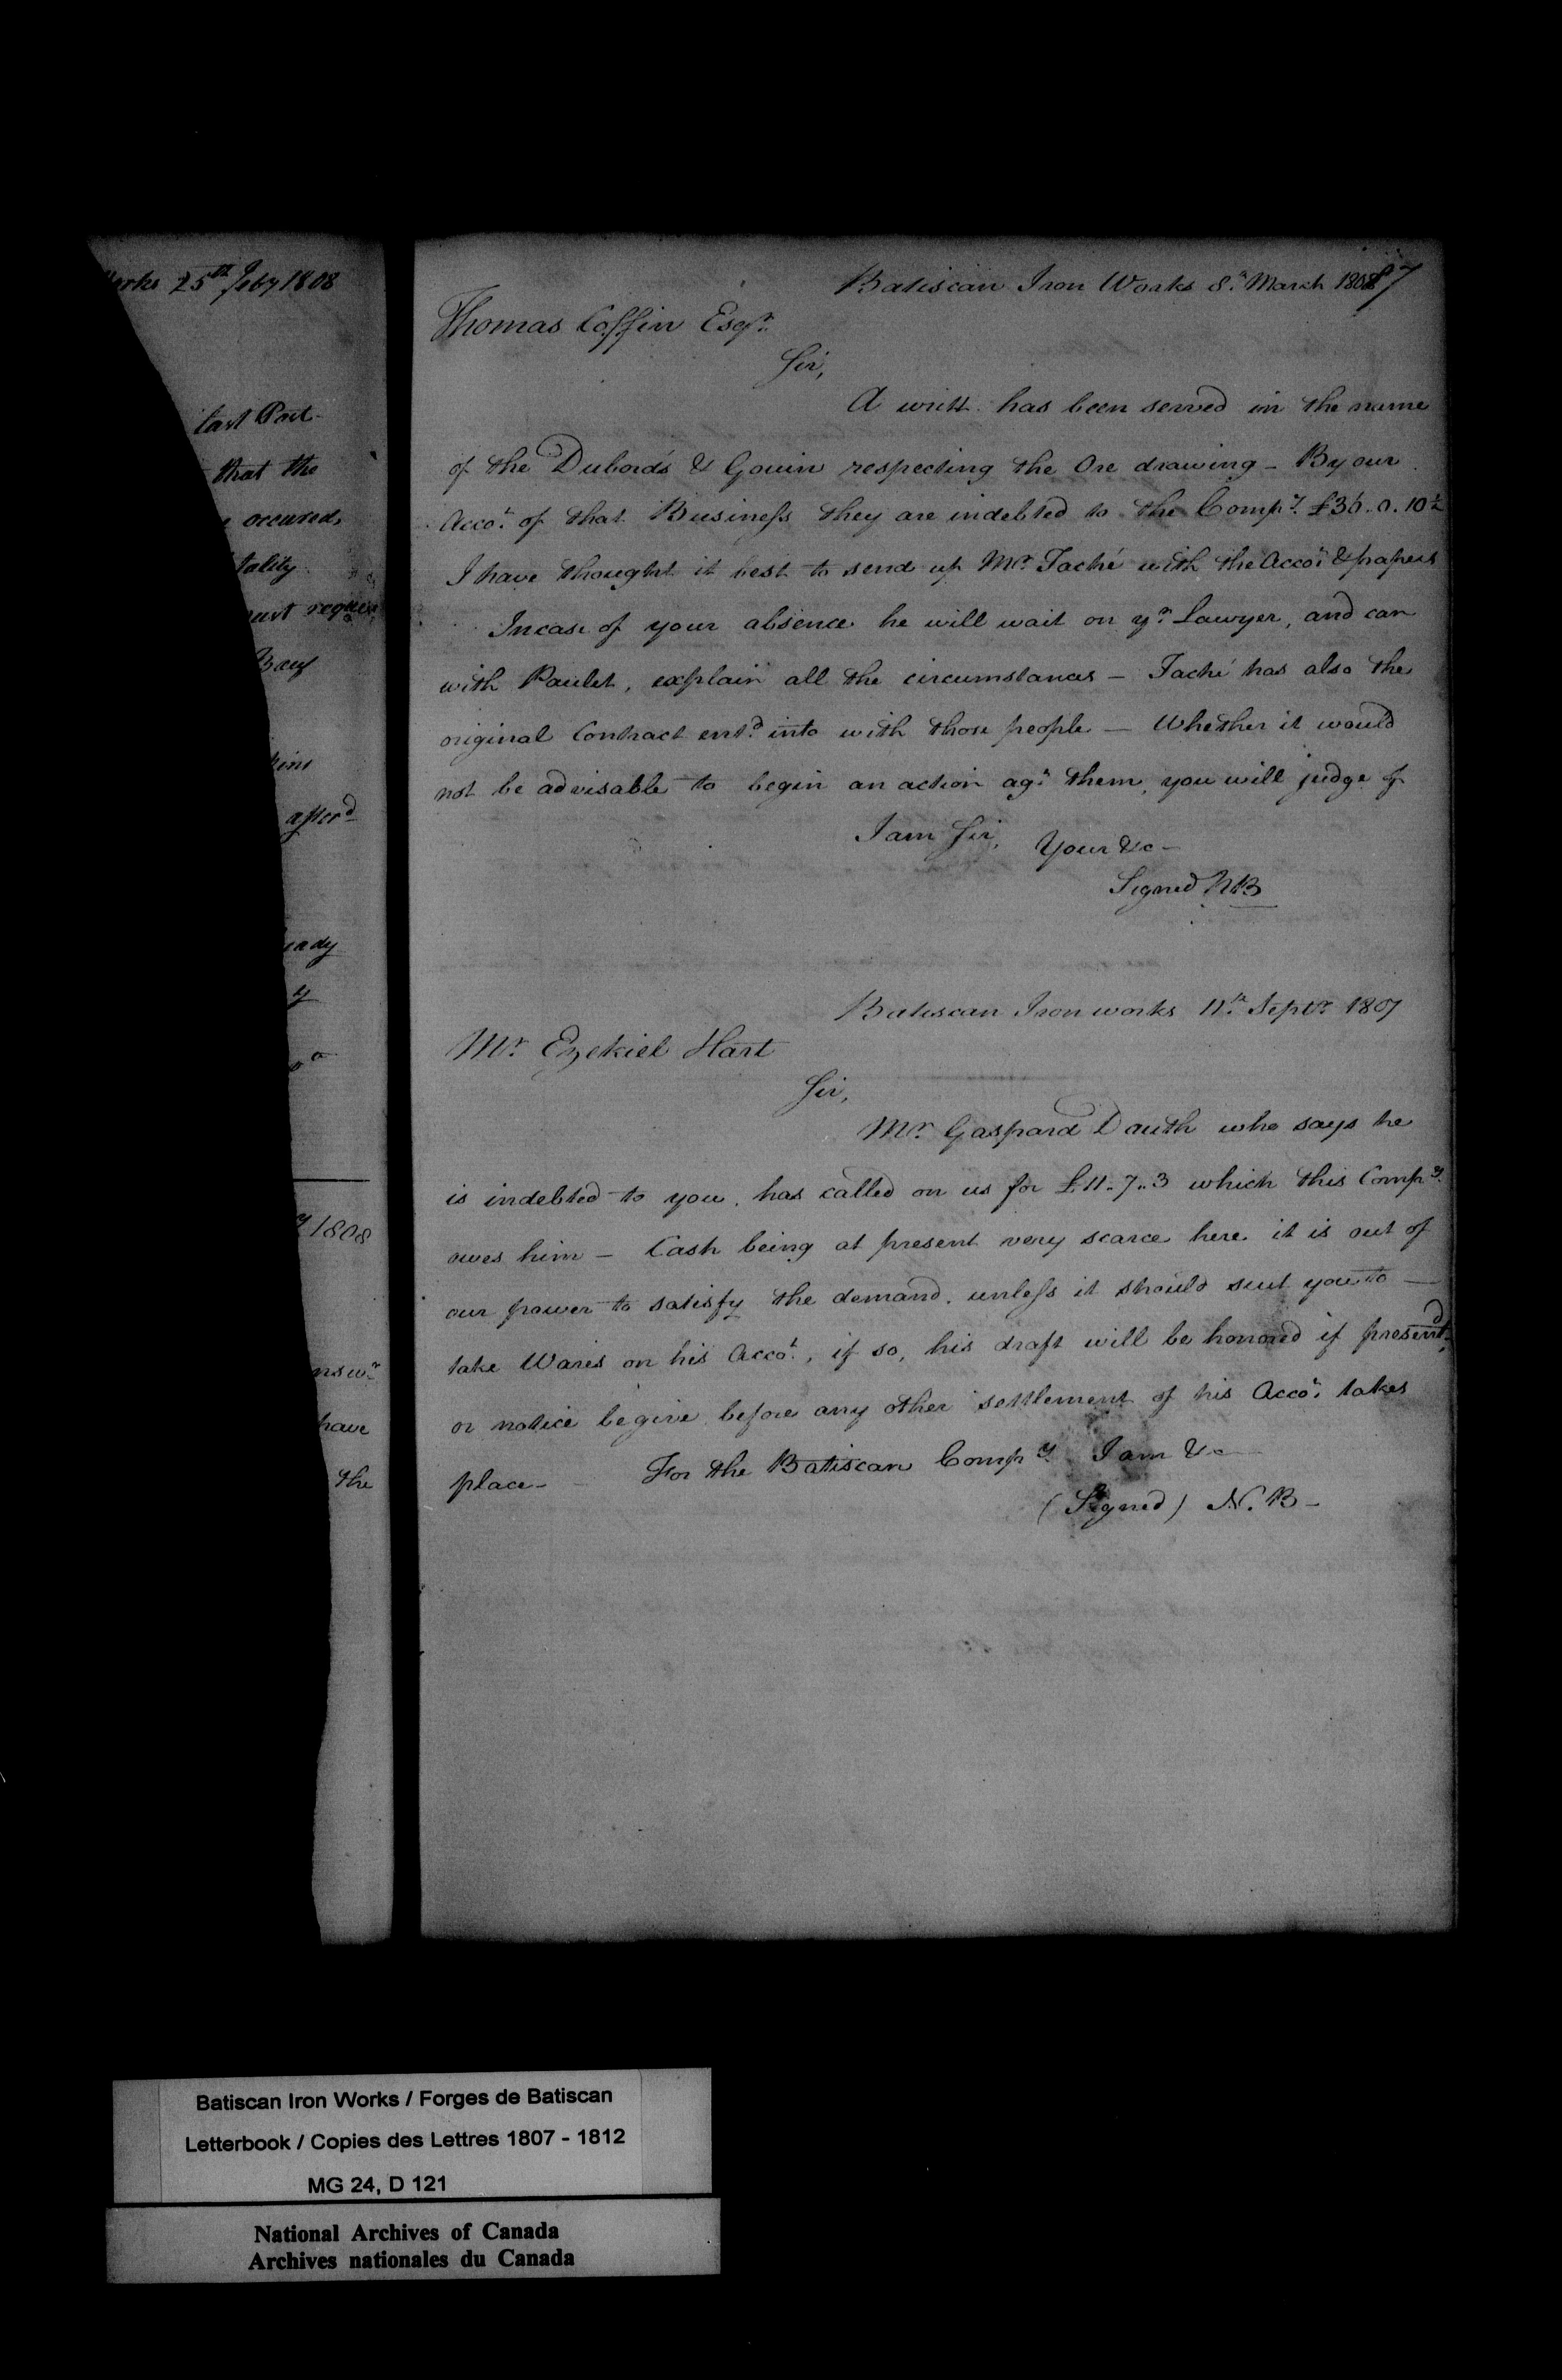 Works 25th Feby 1808
last Post
that the
occured,
tality
Bay
after'd
eady
y 1808
answr
have
the
87
Batiscan Iron Works 8th March 1808
Thomas Coffin Esqr.
Sir,
A writt has been served in the name
of the Dubord's & Gouin respecting the Ore drawing – By our
Accot. of that Business they are indebted to the Compy. £36.0.10½
I have thought it best to send up Mr. Taché with the Accot. & papers
Incase of your absence he will wait on yr. Lawyer, and can
with Paulet, explain all the circumstances – Taché has also the
original Contract entd. into with those people – Whether it would
not be advisable to begin an action agt. them, you will judge of
I am Sir, Your &c –
Signed NB
Batiscan Iron works 11th Septr. 1807
Mr. Ezekiel Hart
Sir,
Mr. Gaspard Dauth who says he
is indebted to you, has called on us for £11..7..3 which this Compy.
owes him – Cash being at present very scarce here it is out of
our power to satisfy the demand, unless it should suit you to –
take Wares on his Accot., if so, his draft will be honored if presentd,
or notice be give before any other settlement of his Accot. takes
place – For the Batiscan Compy. I am &c –
(Signed) N.B –
Batiscan Iron Works / Forges de Batiscan
Letterbook / Copies des Lettres 1807 - 1812
MG 24, D 121
National Archives of Canada
Archives nationales du Canada